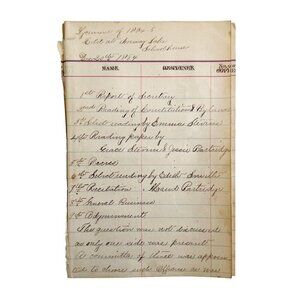 of 1894-5
Held at Norway Lake
Schoolhouse
Dec 20th 1894
NAME RESIDENCE
1st Report of Secretary
2nd Reading of Constitution & By Laws
3rd Select reading by Emma Stevens
4th Reading paper by
Grace Stevens & Jessie Partridge
5th Recess
6th Select reading by Edith
7th Recitation Partridge
8th General Business
9th Adjournment
The question was not discussed
as only one side was present
A committee of three was appoin
ted to choose such officers as were